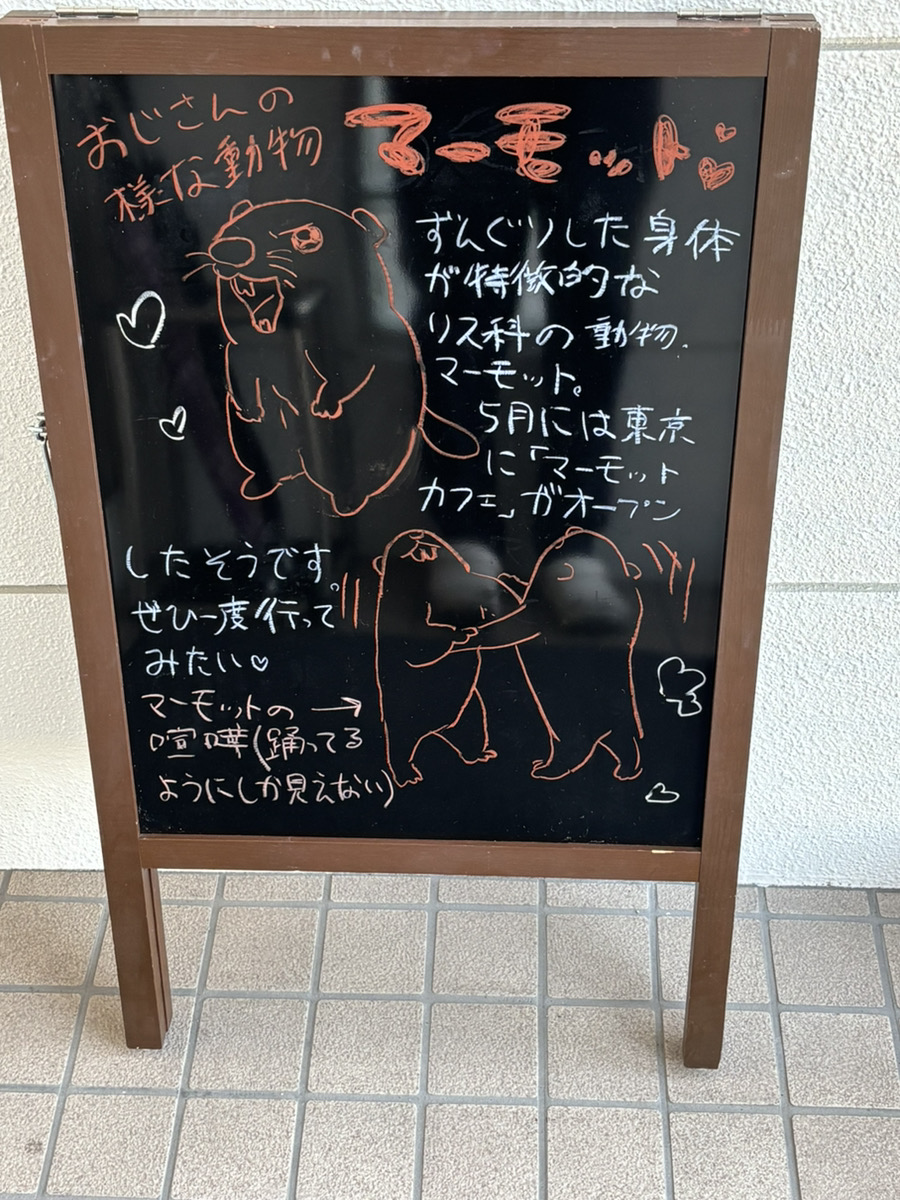 おじさんの
様な動物
マーモット
ずんぐりした身体
が特徴的な
リス科の動物、
マーモット。
5月には東京
に「マーモット
カフェ」がオープン
したそうです。
ぜひ一度行って
みたい♡
マーモットの →
喧嘩(踊ってる
ようにしか見えない)